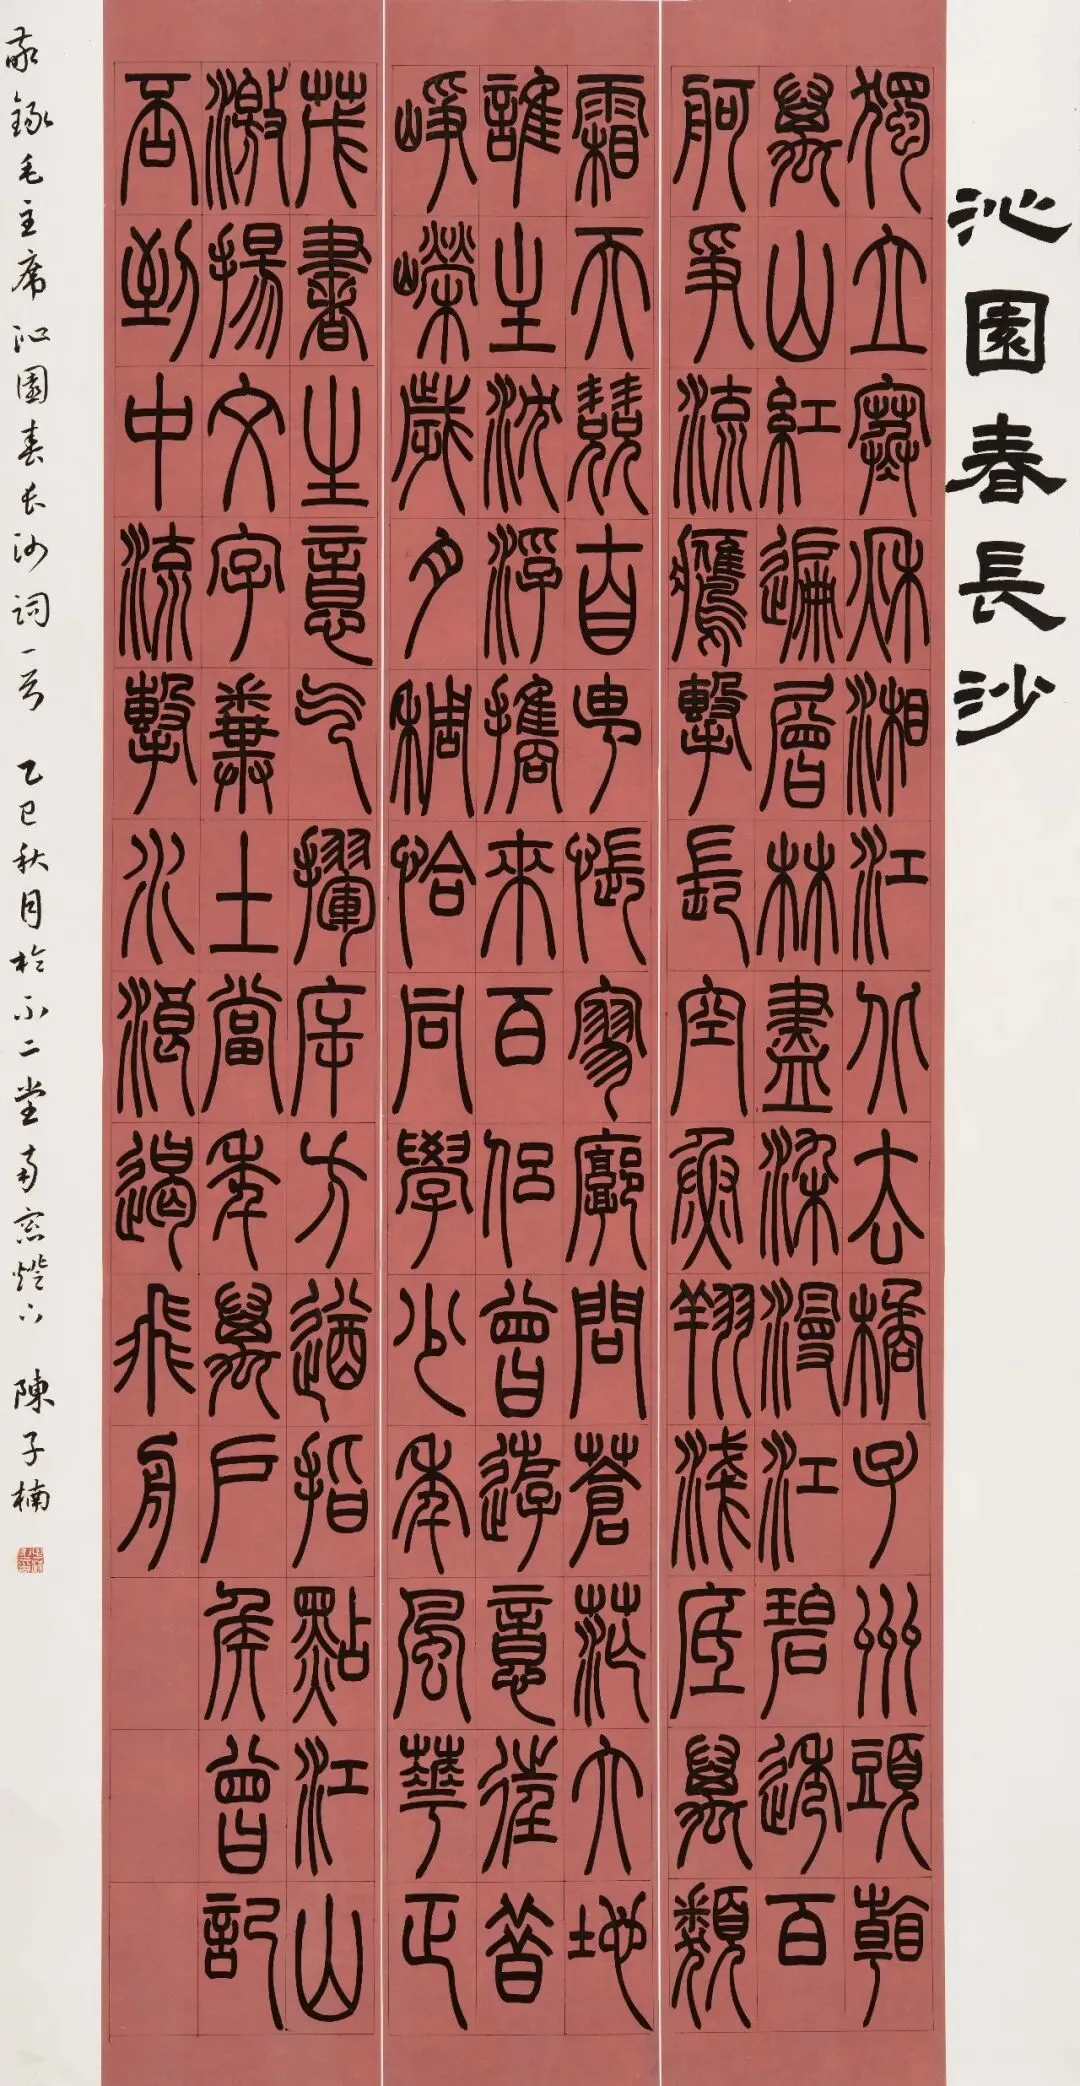 沁園春長沙
獨立寒秋湘江北去橘子州頭看
萬山紅遍層林盡染漫江碧透百
舸爭流鷹擊長空魚翔淺底萬類
霜天競自由悵寥廓問蒼茫大地
誰主沈浮攜來百侶曾遊意往昔
崢嶸歲月稠恰同學少年風華正
茂書生意气揮斥方遒指點江山
激揚文字糞土當年萬戶侯曾記
否到中流擊水浪遏飛舟
敬錄毛主席沁園春長沙詞一首 乙巳秋月於不二堂南窗燈下 陳子楠